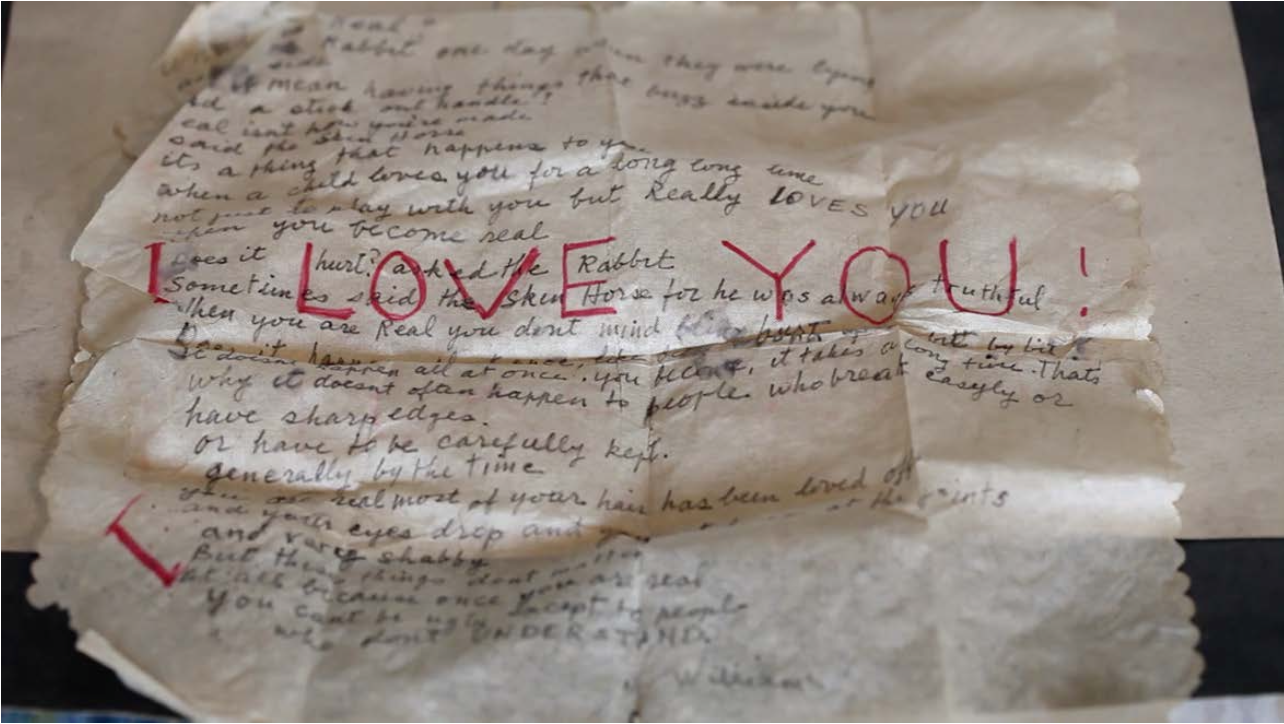 Real?
Rabbit one day when they were lying
side
mean having things that buzz inside you
a stick out handle?
eal isnt how you're made
said the Skin Horse
its a thing that happens to you
when a child loves you for a long long time
not just to play with you but Really LOVES YOU
then you become real
I LOVE YOU!
Does it hurt? asked the Rabbit
Sometimes said the Skin Horse for he was always truthful
When you are Real you dont mind being hurt
bit by bit
It doesnt happen all at once. You become, it takes a long time. Thats
why it doesnt often happen to people who break easyly or
have sharp edges.
or have to be carefully kept.
generally by the time
you are real most of your hair has been loved off
and your eyes drop and at the joints
and very shabby
But these things dont matter
at all because once you are real
You cant be ugly Except to people
who dont UNDERSTAND.
William